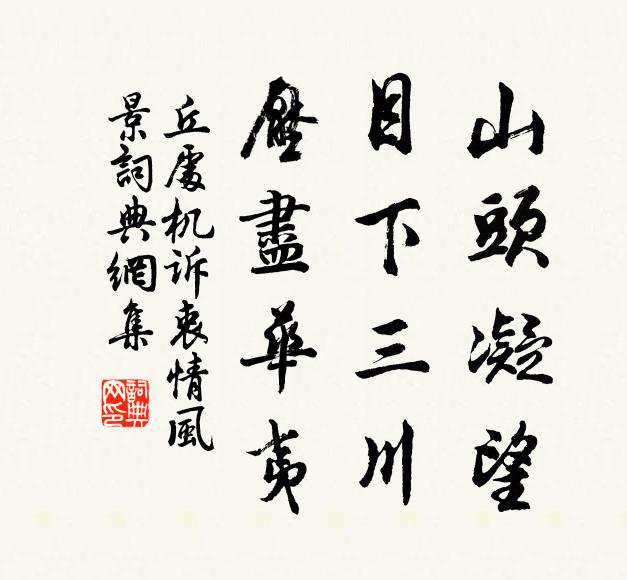 山頭凝望
目下三川
壓盡華夷
丘處机訴衷情風
景詞典網集
詞典
网印